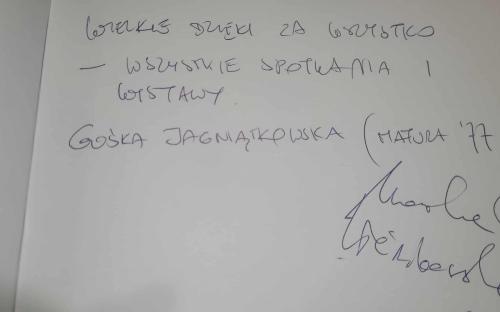 WIELKIE DZIĘKI ZA WSZYSTKO
— WSZYSTKIE SPOTKANIA I
WYSTAWY
GOŚKA JAGNIĄTKOWSKA (MATURA '77